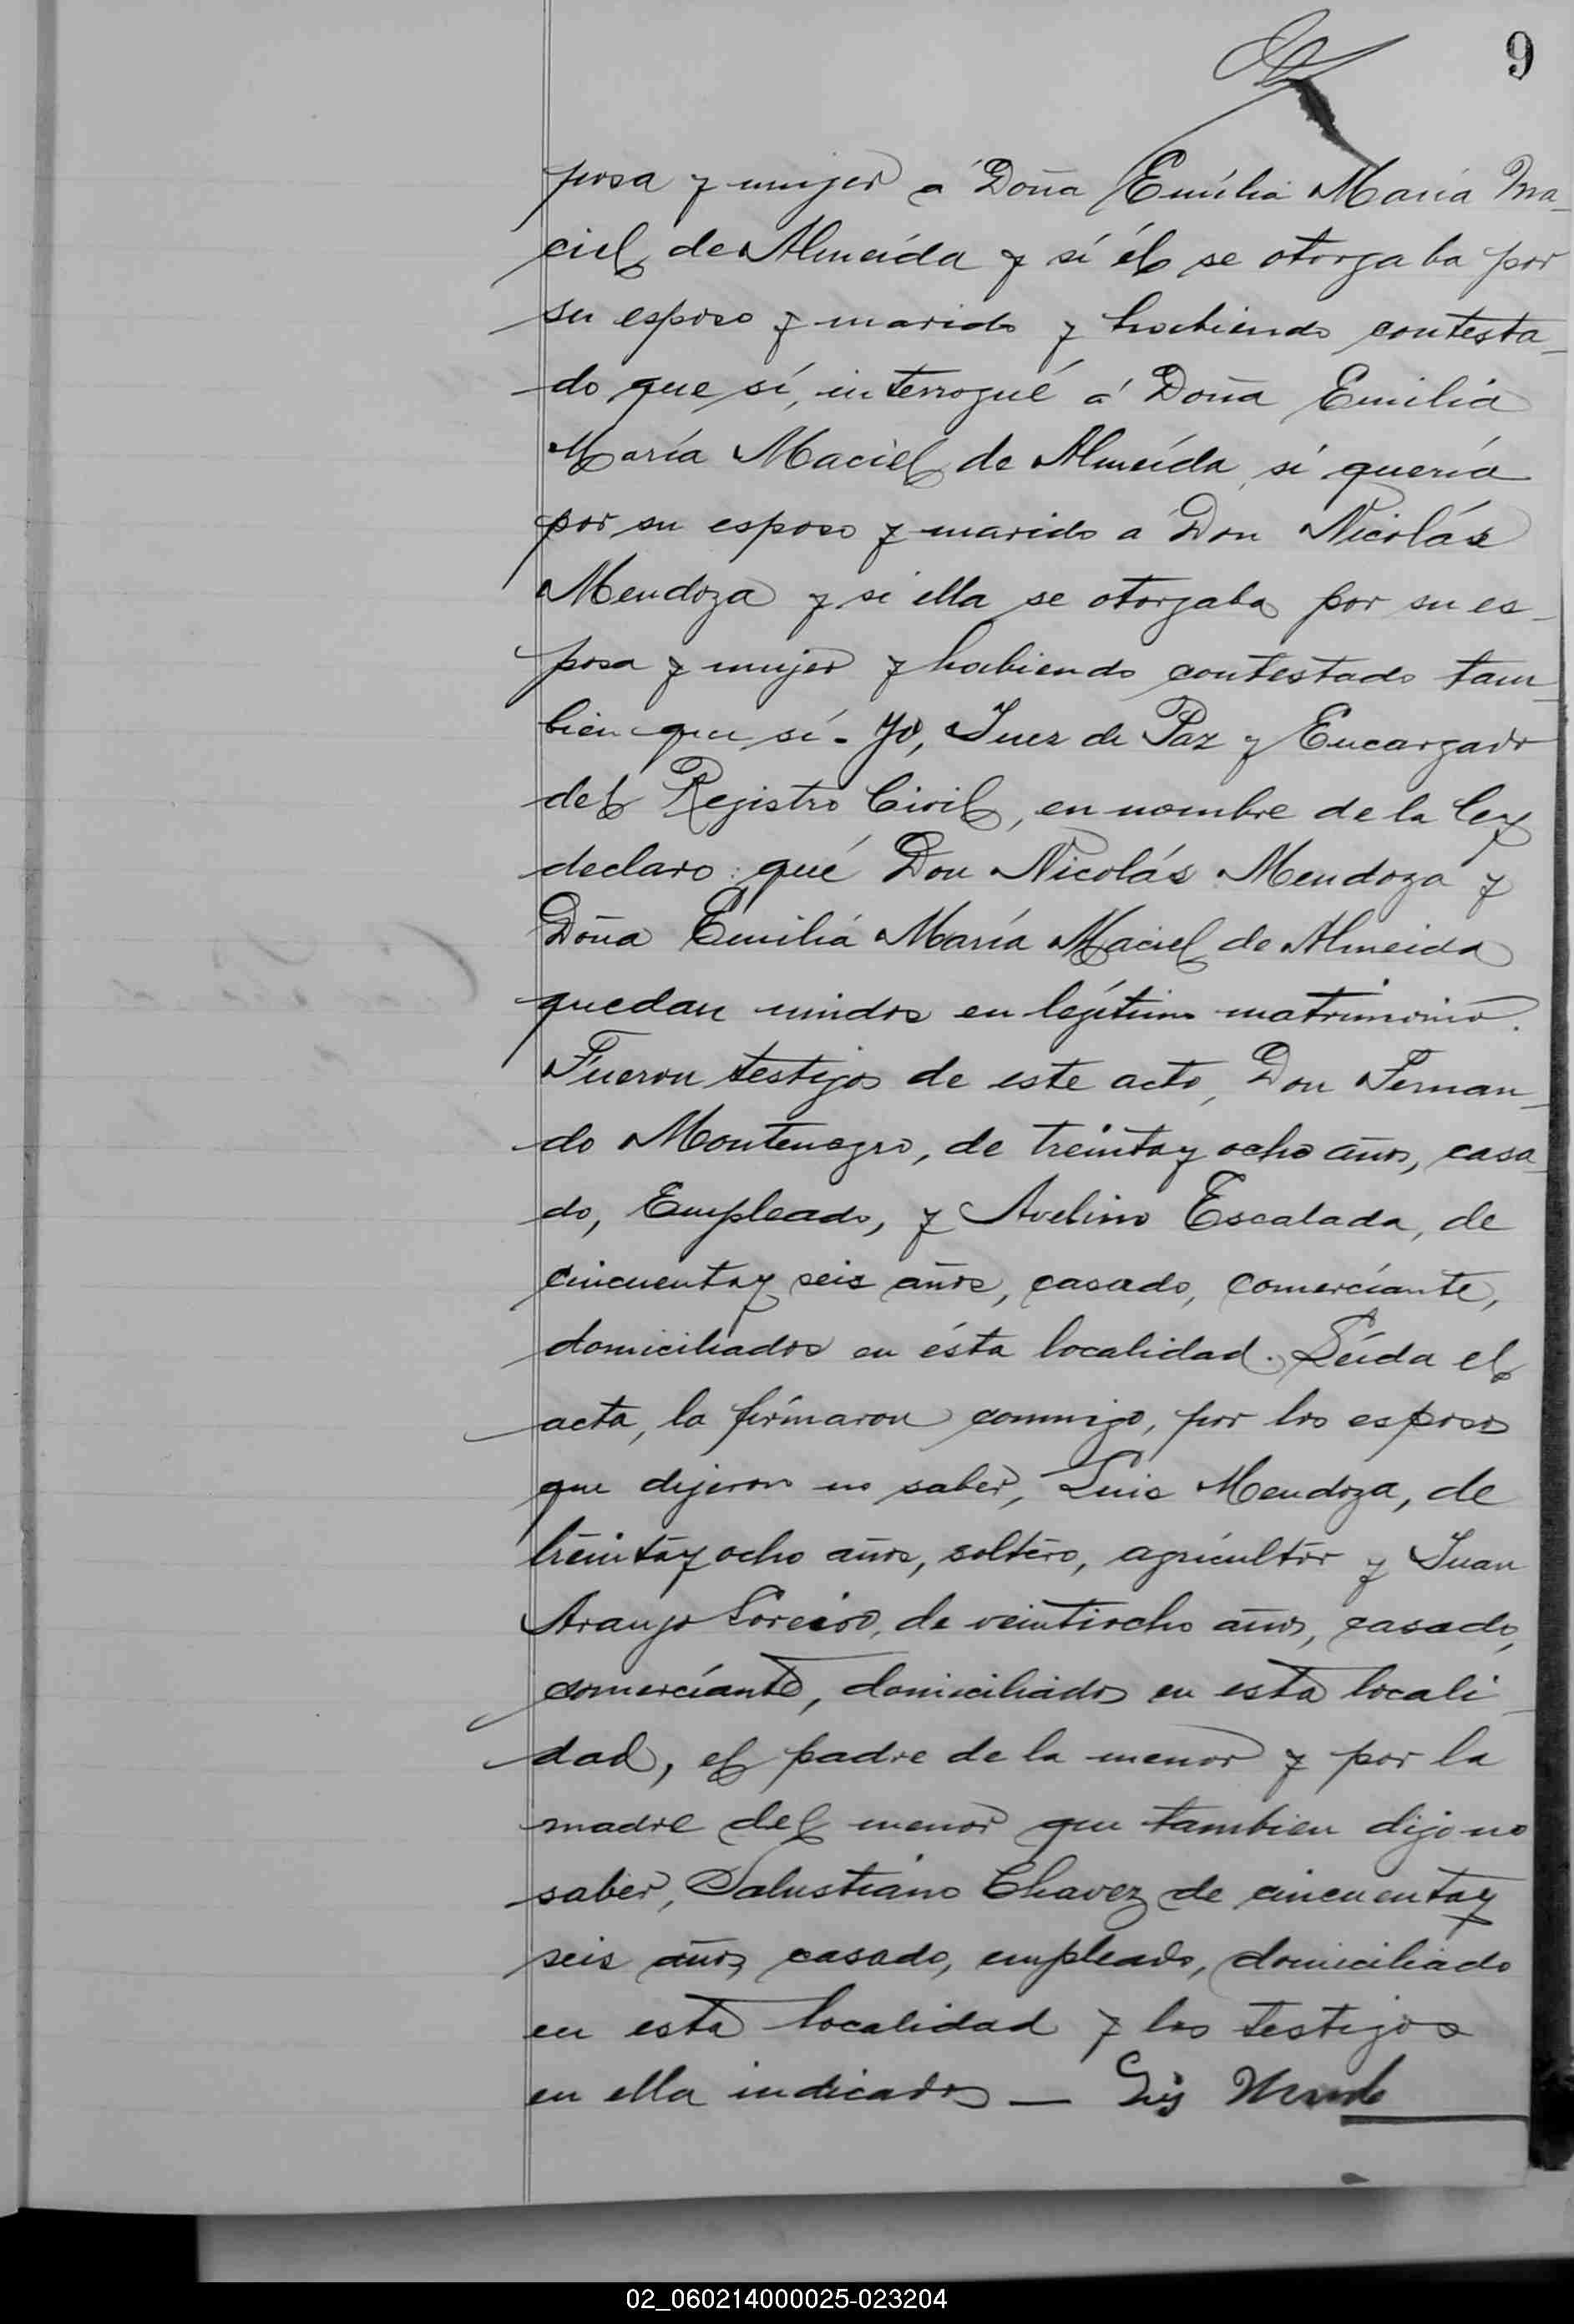 9
posa y mujer a Doña Emilia María Ma-
ciel de Almeida y sí él se otorgaba por
su esposo y marido y habiendo contesta-
do que sí, interrogué á Doña Emilia
María Maciel de Almeída, si quería
por su esposo y marido a Don Nicolás
Mendoza y si ella se otorgaba por su es-
posa y mujer y habiendo contestado tam-
bien que sí - Yo, Juez de Paz y Encargado
del Registro Civil, en nombre de la ley
declaro: qué Don Nicolás Mendoza y
Doña Emilia María Maciel de Almeida
quedan unidos en legítimo matrimonio.
Fueron testigos de este acto, Don Fernan-
do Montenegro, de treinta y ocho años, casa-
do, Empleado, y Avelino Escalada, de
cincuenta y seis años, casado, comerciante,
domiciliados en ésta localidad. Leída el
acta, la firmaron conmigo, por los esposos
que dijeron no saber, Luis Mendoza, de
treinta y ocho años, soltero, agricultor y Juan
Araujo de veintiocho años, casado,
comerciante, domiciliados en esta locali-
dad, el padre de la menor y por la
madre del menor que tambien dijo no
saber, Salustiano Chavez de cincuenta y
seis años, casado, empleado, domiciliado
en esta localidad y los testigos
en ella indicados —
02_060214000025-023204